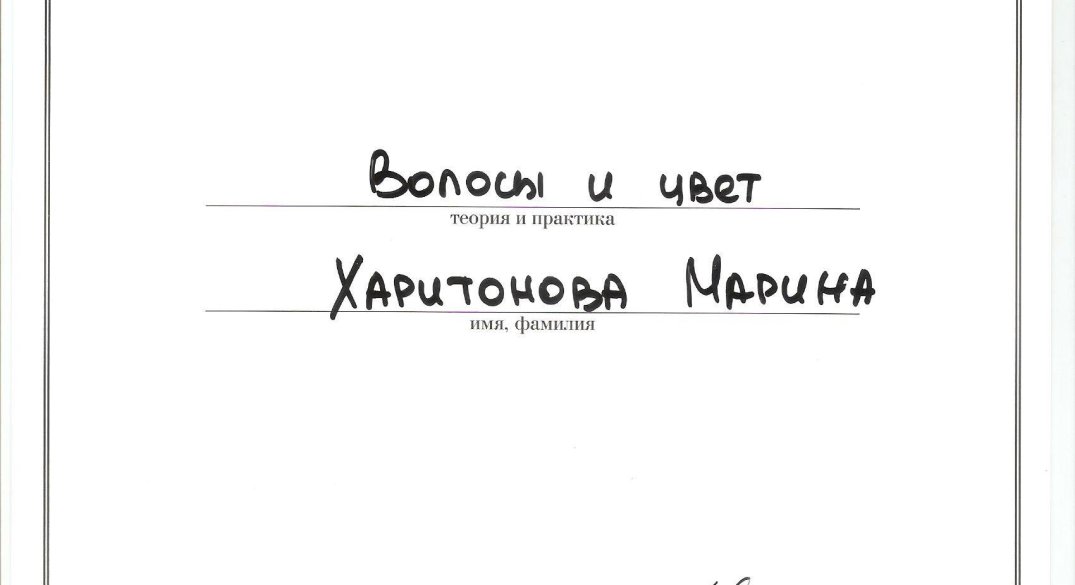 Волосы и цвет
теория и практика
Харитонова Марина
имя, фамилия